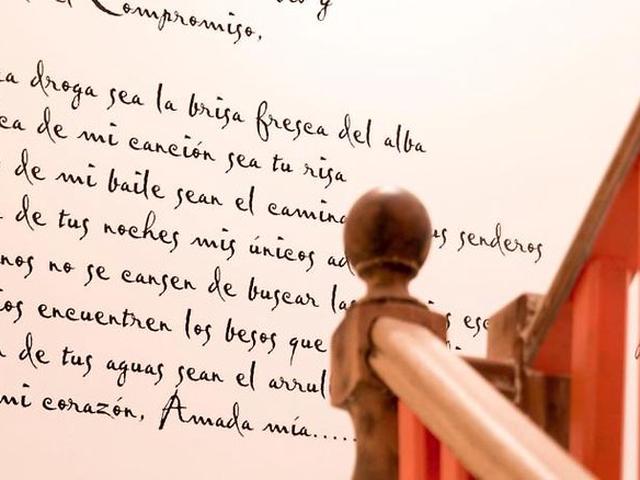 Compromiso,
droga sea la brisa fresca del alba
de mi canción sea tu risa
de mi baile sean el senderos
de tus noches mis únicos
no se cansen de buscar
encuentren los besos que
de tus aguas sean el
mi corazón, Amada mía.....